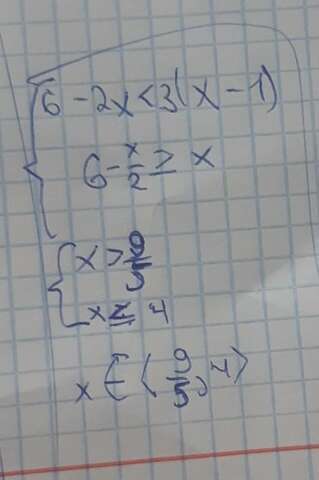 6 - 2x < 3(x - 1)
6 - x/2 ≥ x
x > 9/5
x ≤ 4
x ∈ (9/5, 4)